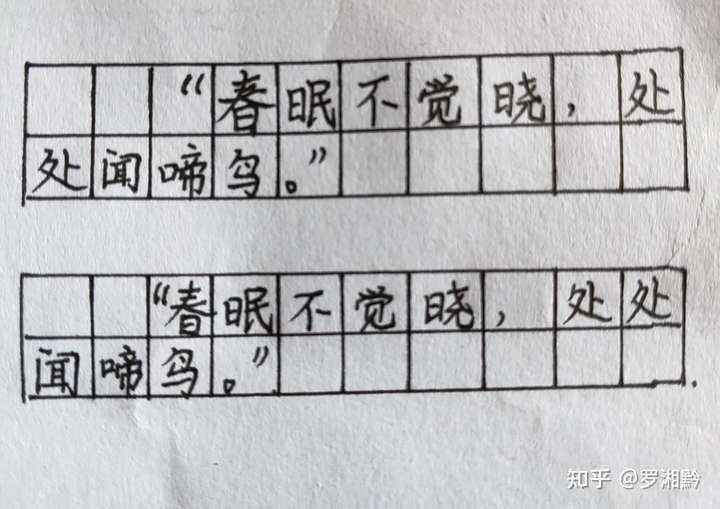 “春眠不觉晓，处
处闻啼鸟。”
“春眠不觉晓，处处
闻啼鸟。”
知乎 @罗湘黔